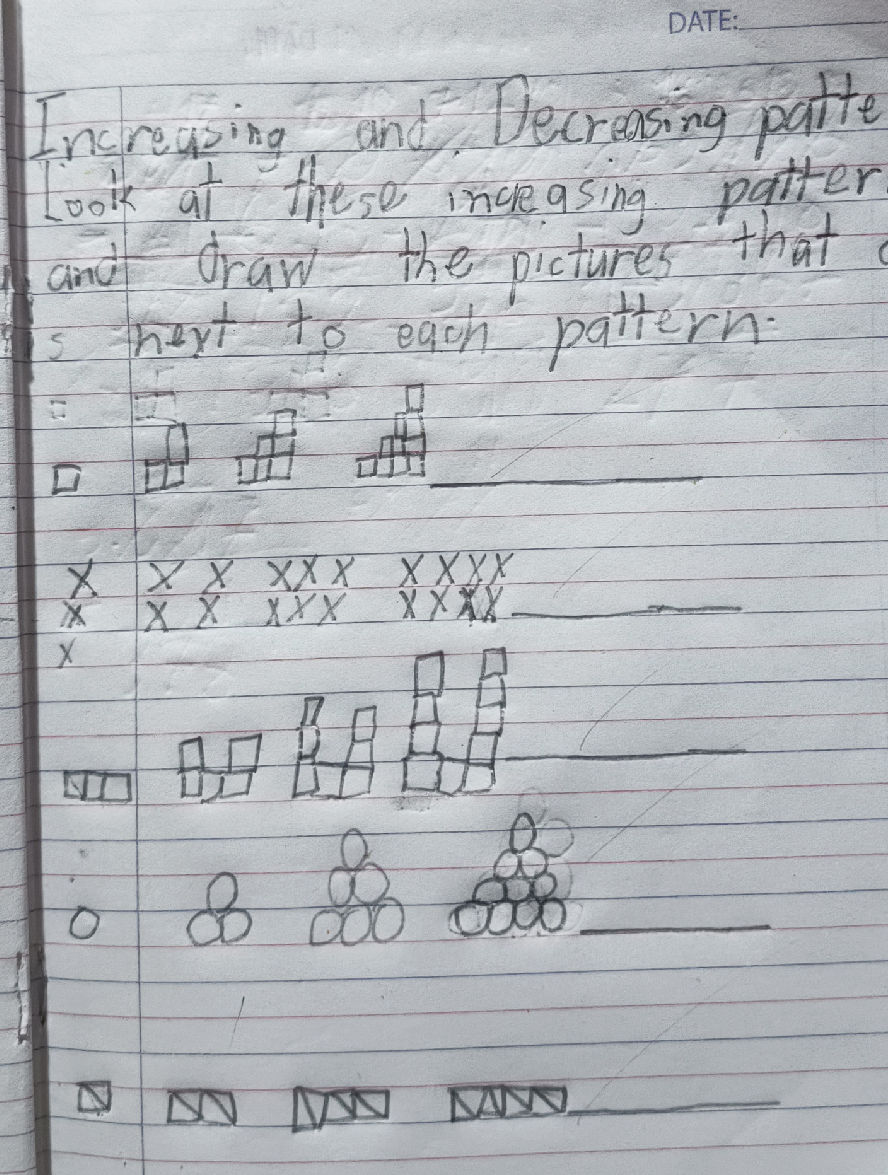 DATE:
Increasing and Decreasing patte
Look at these increasing patter
and draw the pictures that c
s next to each pattern.
X X X X X X X X X X
X X X X X X X X X X
X